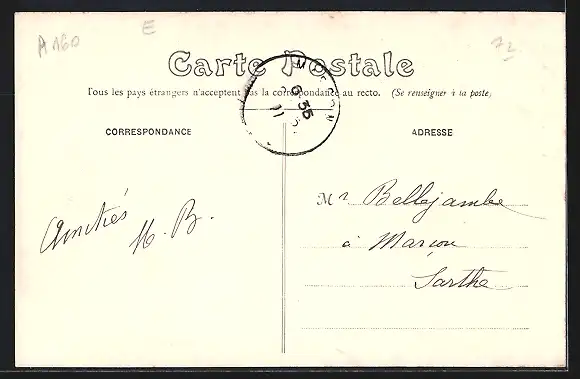 A 160
E
72
Carte Postale
Tous les pays étrangers n'acceptent pas la correspondance au recto. (Se renseigner à la poste)
CORRESPONDANCE
ADRESSE
6 35
11
Mr Bellejambe
à Marçon
Sarthe
Amitiés
H. B.